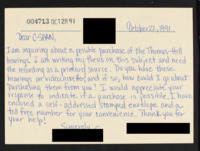 004713 OCT 28 91
October 22, 1991
Dear C-SPAN,
I am inquiring about a possible purchase of the Thomas-Hill
hearings. I am writing my thesis on this subject and need
the recording as a primary source. Do you have these
hearings on videocassette (and if so, how could I go about
purchasing them from you? I would appreciate your
response to indicate if a purchase is possible. I have
enclosed a self-addressed stamped envelope and a
toll free number for your convenience. Thank you for
your help!
Sincerely,